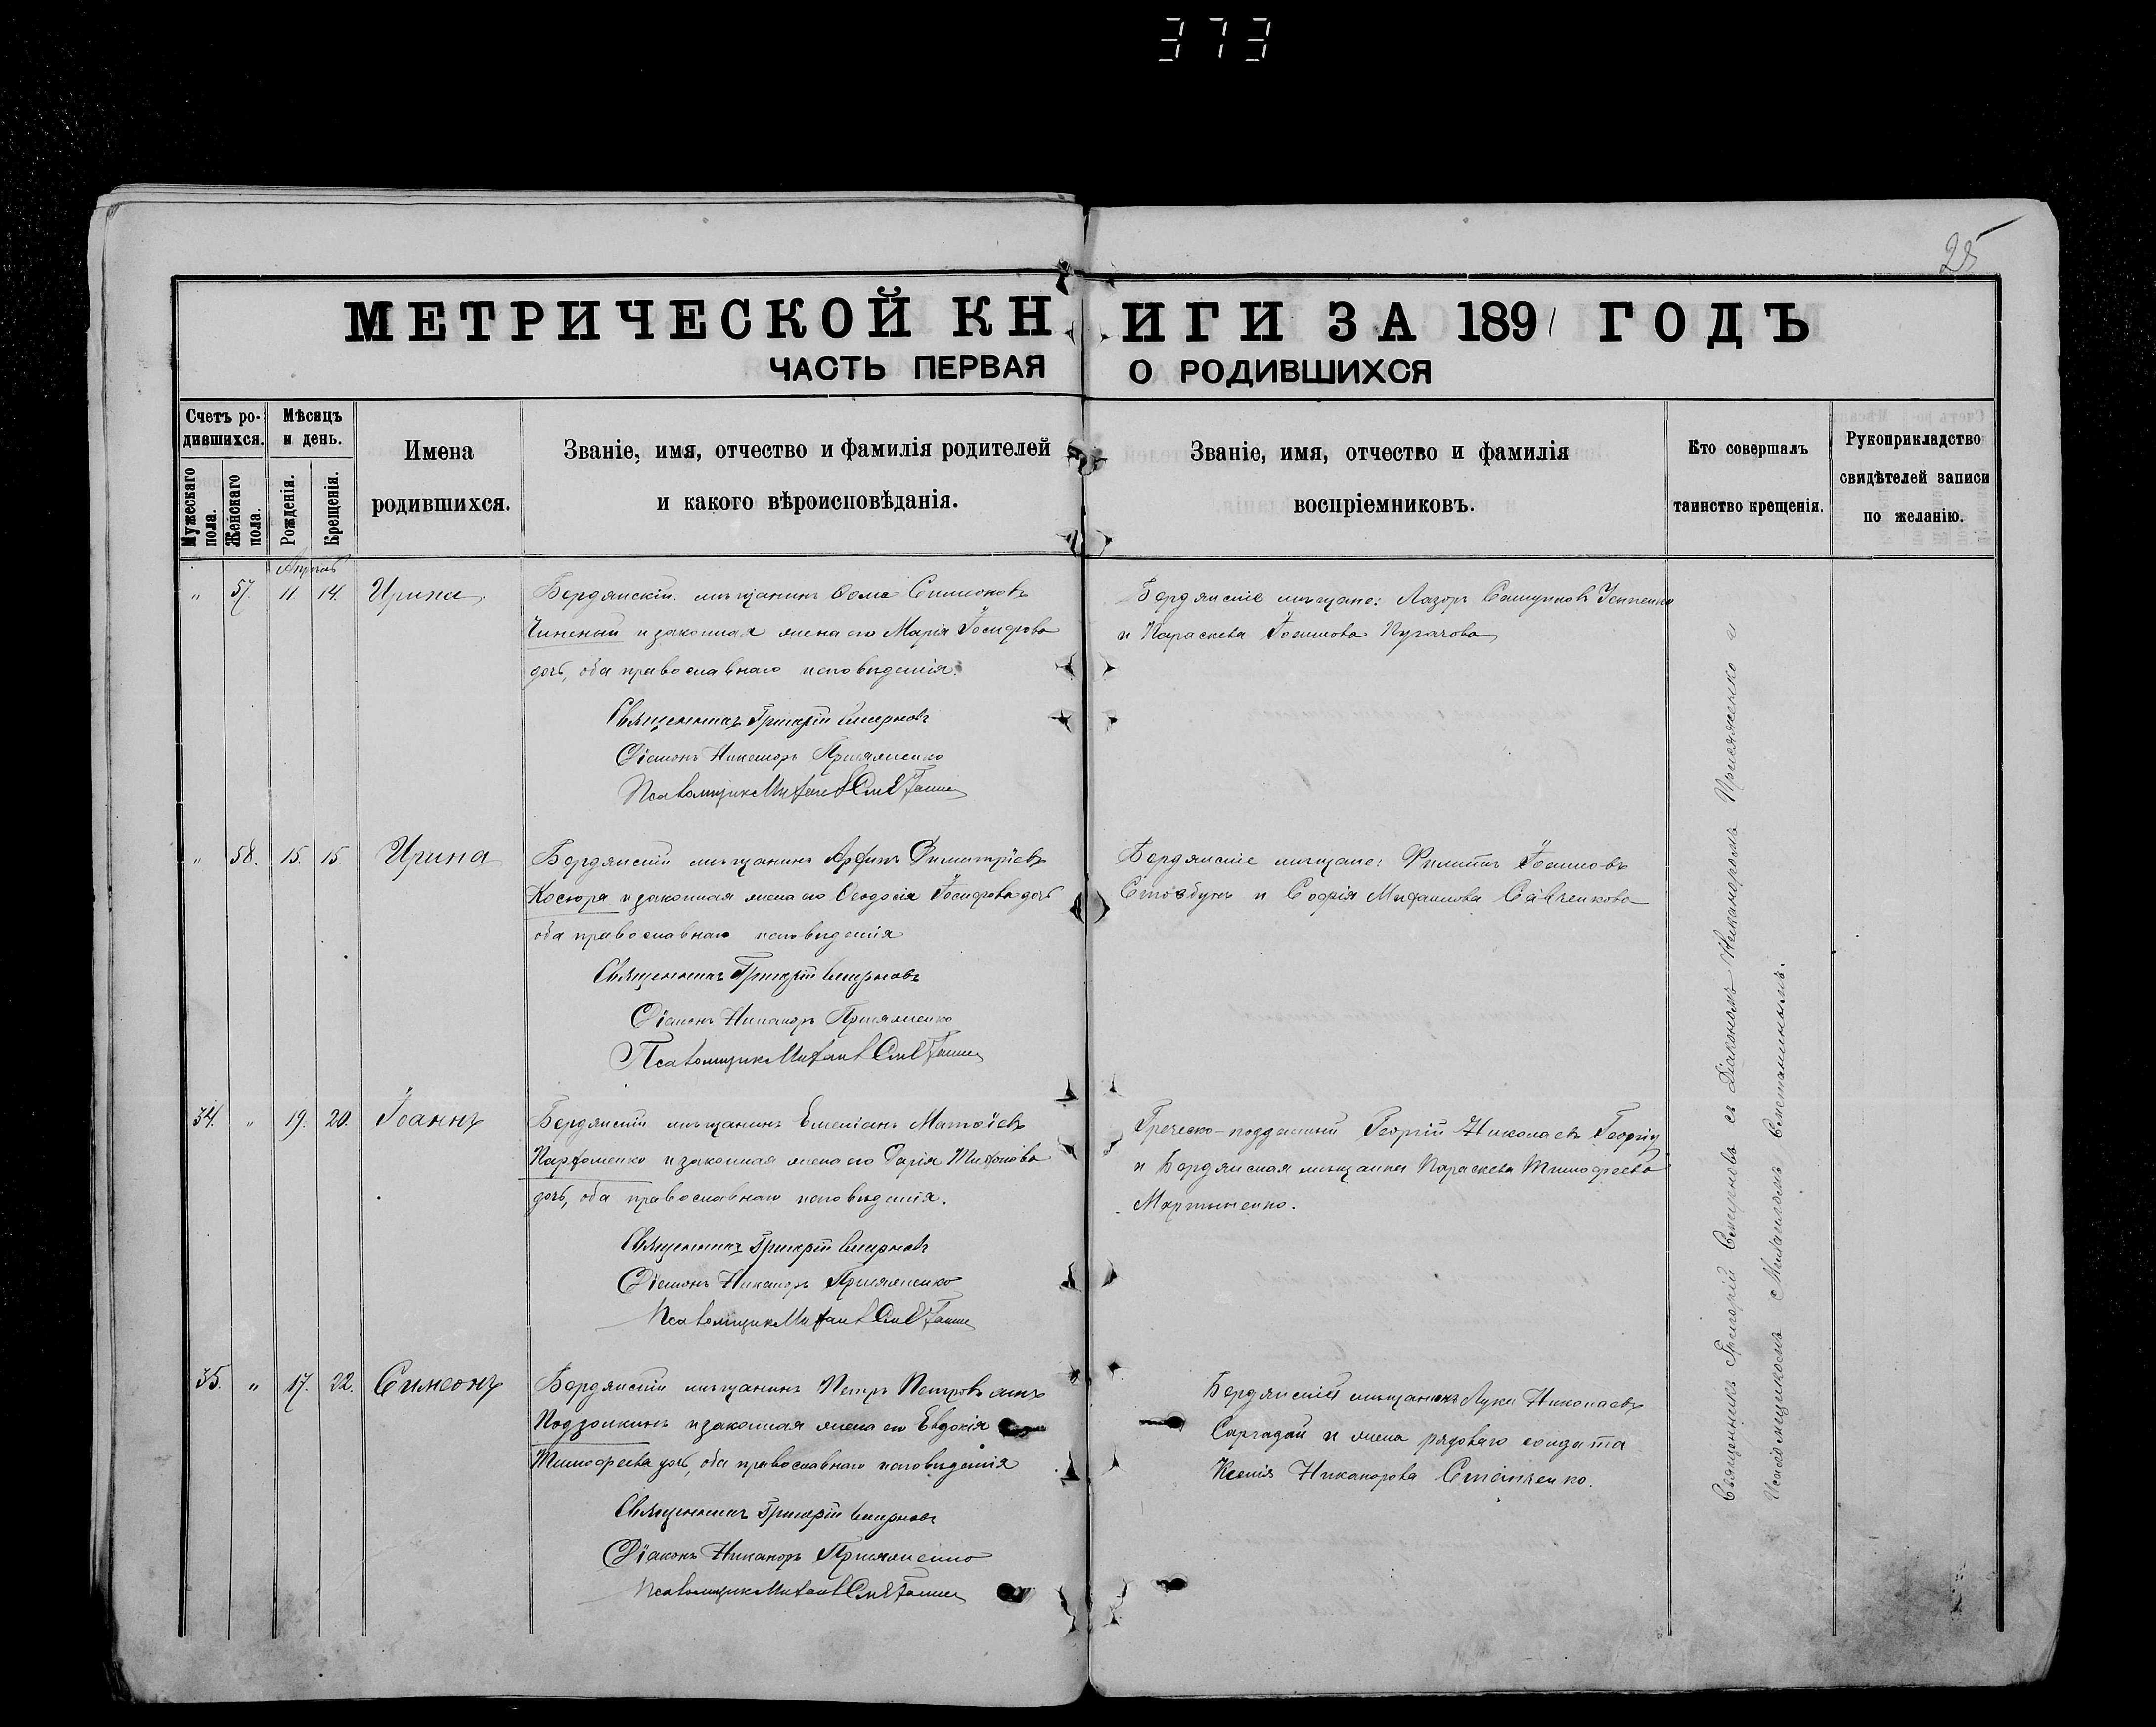 373
25
МЕТРИЧЕСКОЙ КНИГИ ЗА 1891 ГОДЪ
ЧАСТЬ ПЕРВАЯ О РОДИВШИХСЯ
Счетъ родившихся.
Мужескаго пола.
Женскаго пола.
Мѣсяцъ и день.
Рожденія.
Крещенія.
Имена
родившихся.
Званіе, имя, отчество и фамилія родителей
и какого вѣроисповѣданія.
Званіе, имя, отчество и фамилія
воспріемниковъ.
Кто совершалъ
таинство крещенія.
Рукоприкладство
свидѣтелей записи
по желанію.
Апрель
" 57. 11 14. Ирина.
Бердянскій мѣщанинъ Ѳома Симеоновъ
Чиненый и законная жена его Марія Іосифова
дочь, оба православнаго исповѣданія.
Священникъ Григорій Смирновъ
Діаконъ Никаноръ Присяженко
Псаломщикъ Михаилъ
Бердянскіе мѣщане: Лазорь
и Параскева Іоакимова Пугачова
" 58. 15. 15. Ирина
Бердянскій мѣщанинъ Архипъ Димитріевъ
Косюра и законная жена его Ѳеодосія Іосифова дочь
оба православнаго исповѣданія
Священникъ Григорій Смирновъ
Діаконъ Никаноръ Присяженко
Псаломщикъ Михаилъ
Бердянскіе мѣщане: Филиппъ
Стовбунъ и Софія Михаилова Савченкова
34. " 19. 20. Іоаннъ
Бердянскій мѣщанинъ Емеліанъ Матѳіевъ
Пархоменко и законная жена его Дарія Тихонова
дочь, оба православнаго исповѣданія.
Священникъ Григорій Смирновъ
Діаконъ Никаноръ Присяженко
Псаломщикъ Михаилъ
Греческо-подданный Георгій Николаевъ
и Бердянская мѣщанка Параскева Тимофеева
Мартыненко.
35. " 17. 22. Симеонъ
Бердянскій мѣщанинъ Петръ Петровъ
Подзолкинъ и законная жена его Евдокія
Тимофеева дочь, оба православнаго исповѣданія
Священникъ Григорій Смирновъ
Діаконъ Никаноръ Присяженко
Псаломщикъ Михаилъ
Бердянскій мѣщанинъ Лука Николаевъ
и жена рядоваго солдата
Ксенія Никанорова Степаненко.
Священникъ Григорій Смирновъ съ Діакономъ Никаноромъ Присяженко и
Псаломщикомъ Михаиломъ Сметанинымъ.